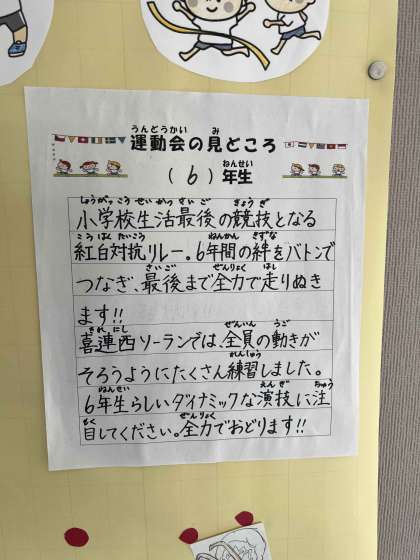 運動会の見どころ
(6)年生
小学校生活最後の競技となる
紅白対抗リレー。6年間の絆をバトンで
つなぎ、最後まで全力で走りぬき
ます!!
喜連西ソーランでは、全員の動きが
そろうようにたくさん練習しました。
6年生らしいダイナミックな演技に注
目してください。全力でおどります!!